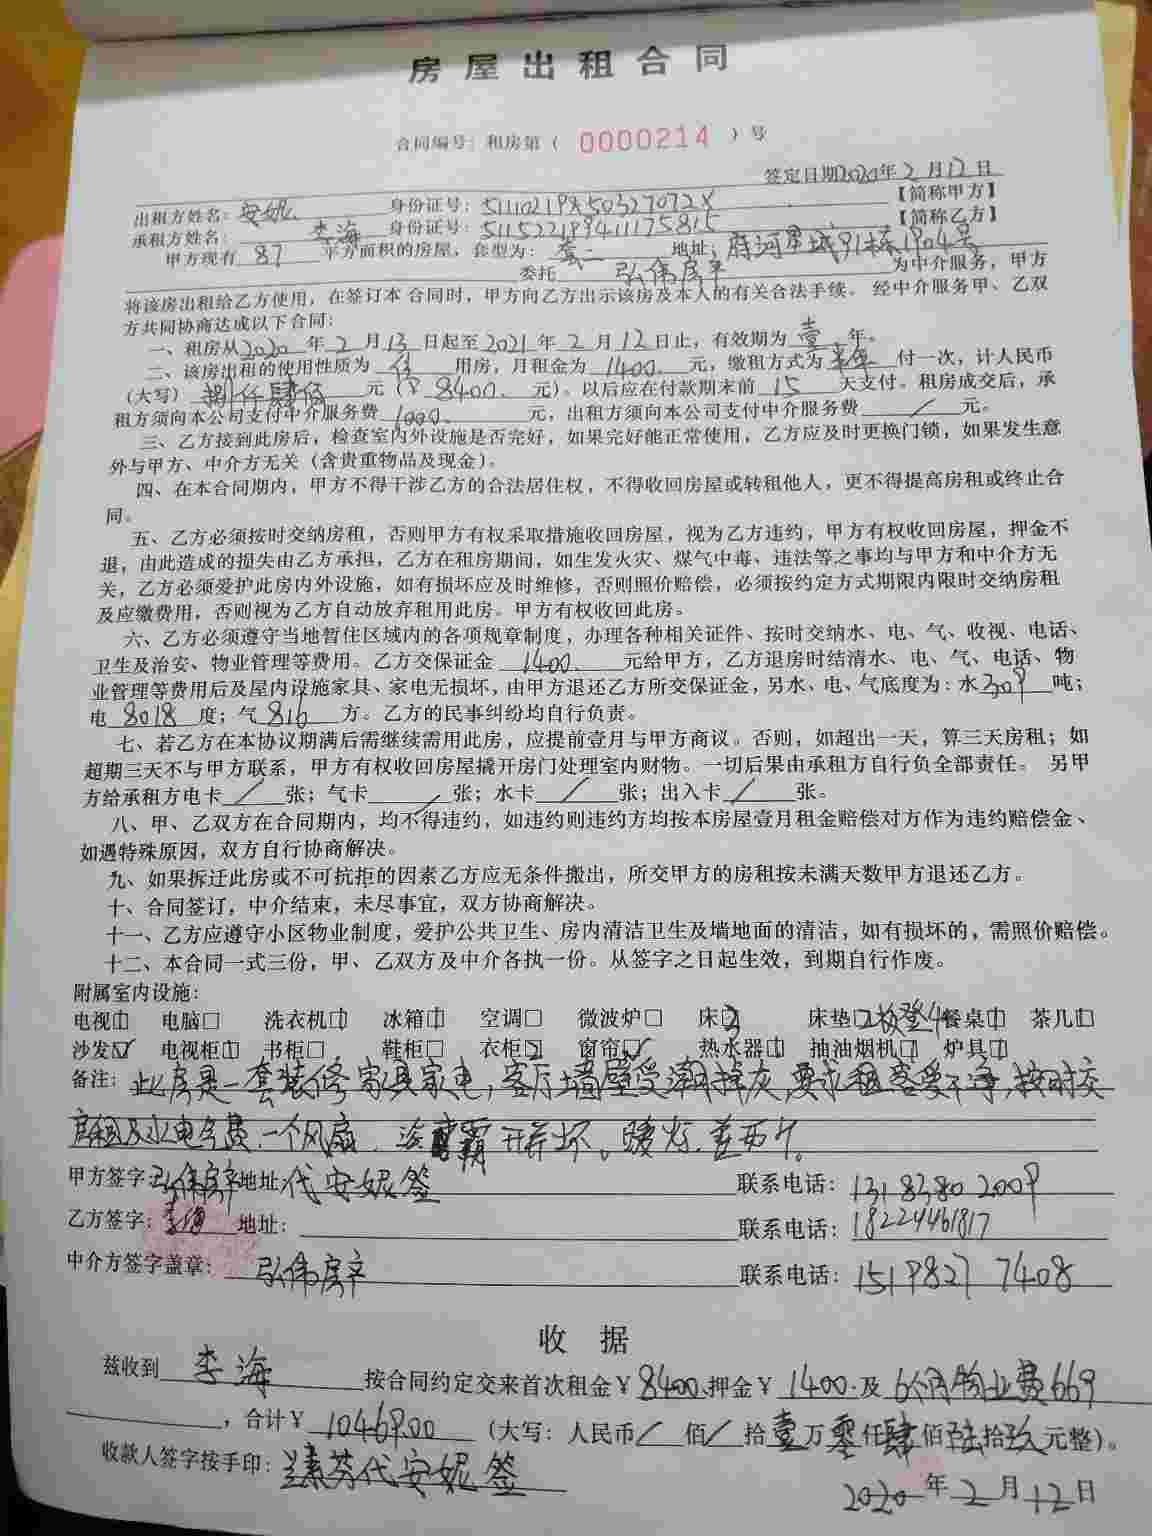 房屋出租合同
合同编号：和房第（ 0000214 ）号
签定日期2020年2月12日
出租方姓名：安妮 身份证号：51110219850327072X 【简称甲方】
承租方姓名：李海 身份证号：511522199411175815 【简称乙方】
甲方现有 87 平方面积的房屋，套型为：套二 地址：府河星城91栋1904号
委托 弘伟房产 为中介服务，甲方
将该房出租给乙方使用，在签订本合同时，甲方向乙方出示该房及本人的有关合法手续。经中介服务甲、乙双
方共同协商达成以下合同：
一、租房从2020年2月13日起至2021年2月12日止，有效期为壹年。
二、该房出租的使用性质为 住 用房，月租金为 1400. 元，缴租方式为半年付一次，计人民币
（大写）捌仟肆佰 元（￥8400. 元）。以后应在付款期末前 15 天支付。租房成交后，承
租方须向本公司支付中介服务费 1000. 元，出租方须向本公司支付中介服务费 / 元。
三、乙方接到此房后，检查室内外设施是否完好，如果完好能正常使用，乙方应及时更换门锁，如果发生意
外与甲方、中介方无关（含贵重物品及现金）。
四、在本合同期内，甲方不得干涉乙方的合法居住权，不得收回房屋或转租他人，更不得提高房租或终止合
同。
五、乙方必须按时交纳房租，否则甲方有权采取措施收回房屋，视为乙方违约，甲方有权收回房屋，押金不
退，由此造成的损失由乙方承担，乙方在租房期间，如生发火灾、煤气中毒、违法等之事均与甲方和中介方无
关，乙方必须爱护此房内外设施，如有损坏应及时维修，否则照价赔偿，必须按约定方式期限内限时交纳房租
及应缴费用，否则视为乙方自动放弃租用此房。甲方有权收回此房。
六、乙方必须遵守当地暂住区域内的各项规章制度，办理各种相关证件、按时交纳水、电、气、收视、电话、
卫生及治安、物业管理等费用。乙方交保证金 1400. 元给甲方，乙方退房时结清水、电、气、电话、物
业管理等费用后及屋内设施家具、家电无损坏，由甲方退还乙方所交保证金，另水、电、气底度为：水309吨；
电 8018 度；气 816 方。乙方的民事纠纷均自行负责。
七、若乙方在本协议期满后需继续需用此房，应提前壹月与甲方商议。否则，如超出一天，算三天房租；如
超期三天不与甲方联系，甲方有权收回房屋撬开房门处理室内财物。一切后果由承租方自行负全部责任。 另甲
方给承租方电卡 / 张；气卡 / 张；水卡 / 张；出入卡 / 张。
八、甲、乙双方在合同期内，均不得违约，如违约则违约方均按本房屋壹月租金赔偿对方作为违约赔偿金、
如遇特殊原因，双方自行协商解决。
九、如果拆迁此房或不可抗拒的因素乙方应无条件搬出，所交甲方的房租按未满天数甲方退还乙方。
十、合同签订，中介结束，未尽事宜，双方协商解决。
十一、乙方应遵守小区物业制度，爱护公共卫生、房内清洁卫生及墙地面的清洁，如有损坏的，需照价赔偿。
十二、本合同一式三份，甲、乙双方及中介各执一份。从签字之日起生效，到期自行作废。
附属室内设施：
电视□1 电脑□ 洗衣机□1 冰箱□1 空调□ 微波炉□ 床□3 床垫□2 板凳4 餐桌□1 茶几□1
沙发☑ 电视柜□1 书柜□ 鞋柜□1 衣柜□2 窗帘☑ 热水器□1 抽油烟机□1 炉具□1
备注：此房是一套装修家具家电，客厅墙壁受潮掉灰，要求租客爱干净，按时交
房租及水电气费.一个风扇.浴霸开关坏。暖灯.差两个。
甲方签字：弘伟房产 地址：代安妮签 联系电话：13183802009
乙方签字：李海 地址： 联系电话：18224461817
中介方签字盖章：弘伟房产 联系电话：15198277408
收 据
兹收到 李海 按合同约定交来首次租金￥8400.押金￥1400.及 6个月物业费669
，合计￥10469.00 （大写：人民币/佰/拾壹万零仟肆佰陆拾玖元整）。
收款人签字按手印：素芬代安妮签
2020年2月12日